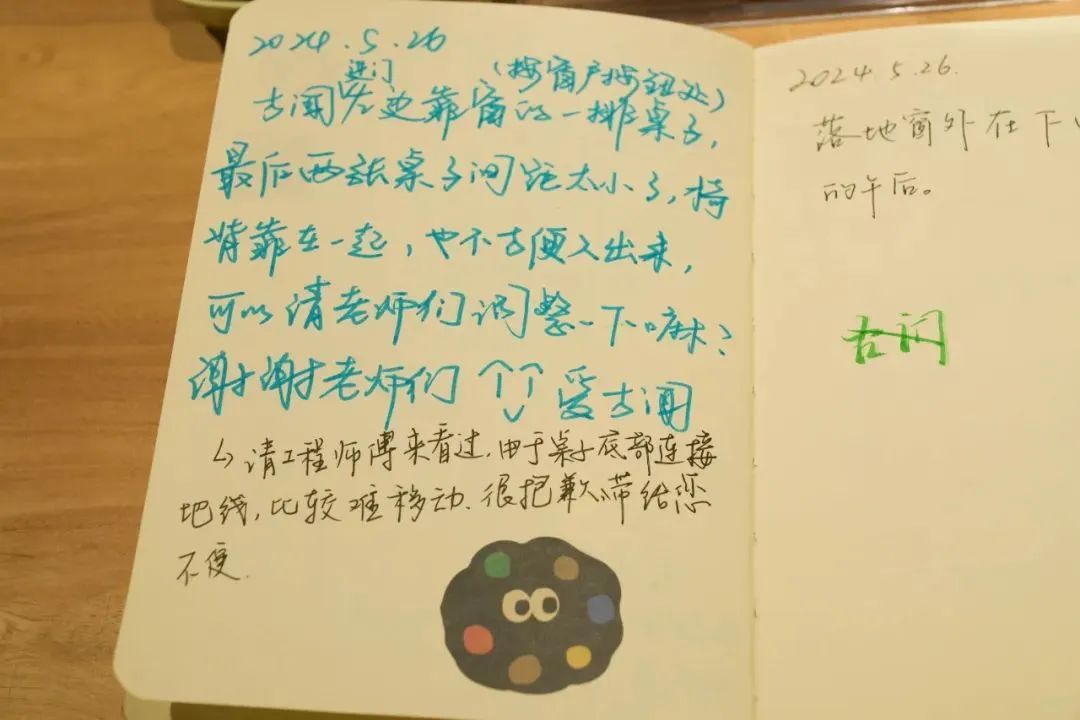 2024.5.26
进门
(按窗户按钮处)
古闻左边靠窗的一排桌子,
最后两张桌子间距太小了,椅
背靠在一起,也不方便入出来,
可以请老师们调整一下嘛?
谢谢老师们 爱古闻
↳请工程师傅来看过.由于桌子底部连接
地线,比较难移动.很抱歉带给您
不便.
2024.5.26.
落地窗外在下
的午后。
古闻